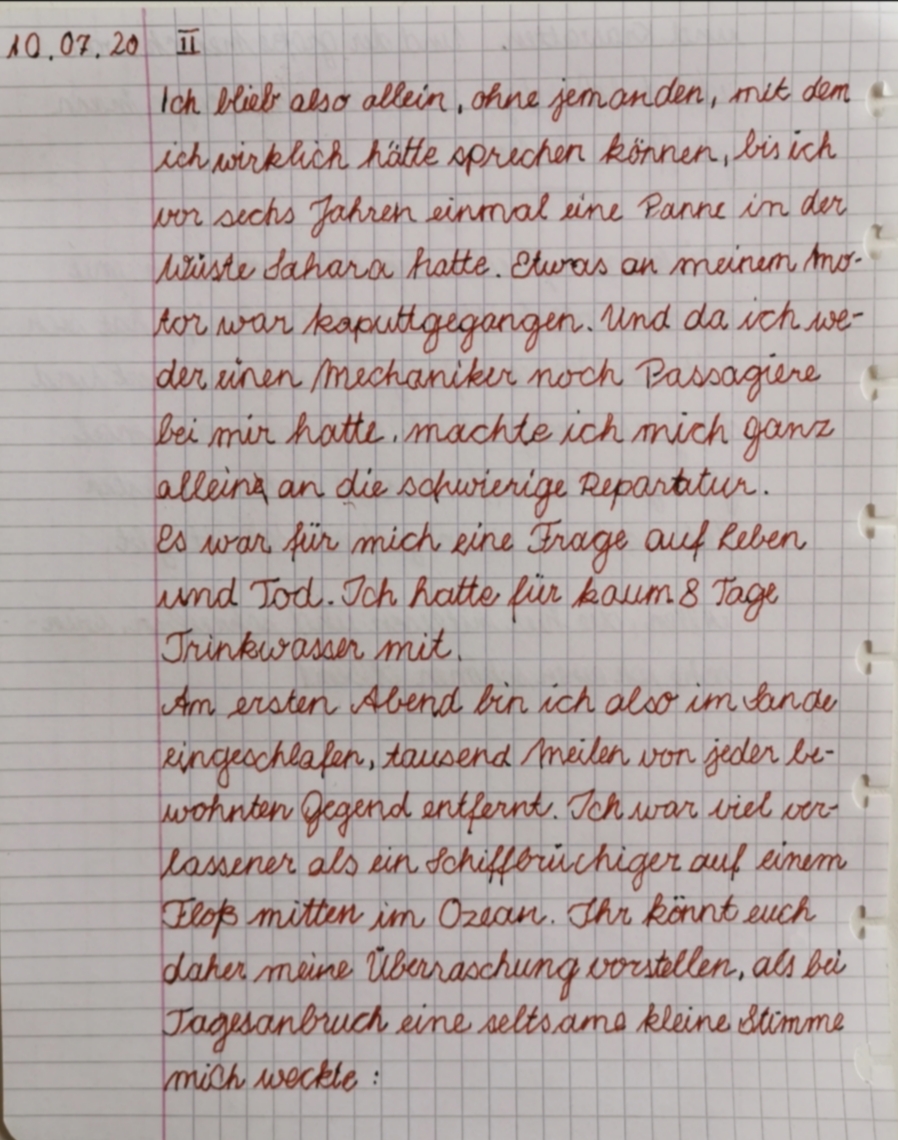 10.07.20 II
Ich blieb also allein, ohne jemanden, mit dem
ich wirklich hätte sprechen können, bis ich
vor sechs Jahren einmal eine Panne in der
Wüste Sahara hatte. Etwas an meinem Mo-
tor war kaputtgegangen. Und da ich we-
der einen Mechaniker noch Passagiere
bei mir hatte, machte ich mich ganz
allein an die schwierige Reparatur.
Es war für mich eine Frage auf Leben
und Tod. Ich hatte für kaum 8 Tage
Trinkwasser mit.
Am ersten Abend bin ich also im Sande
eingeschlafen, tausend Meilen von jeder be-
wohnten Gegend entfernt. Ich war viel ver-
lassener als ein Schiffbrüchiger auf einem
Floß mitten im Ozean. Ihr könnt euch
daher meine Überraschung vorstellen, als bei
Tagesanbruch eine seltsame kleine Stimme
mich weckte: